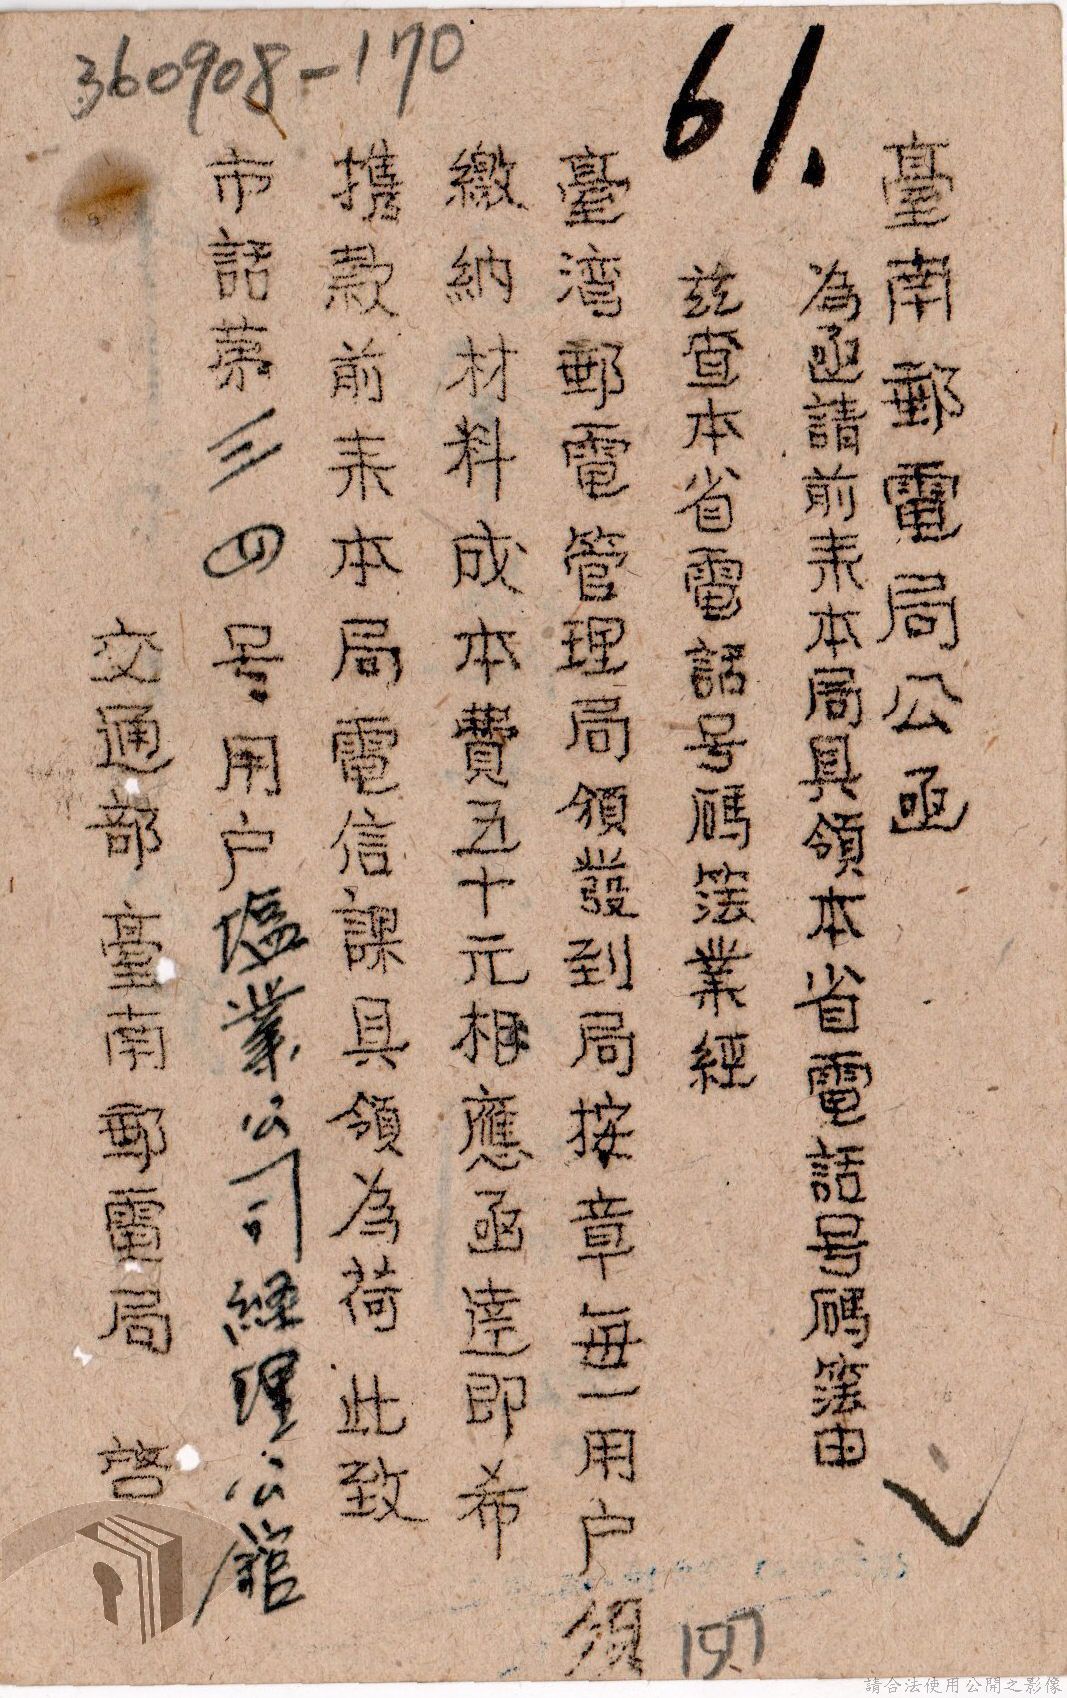 360908-170
61.
臺南郵電局公函
為函請前来本局具領本省電話号碼簿由
兹查本省電話号碼簿業經
臺灣郵電管理局頒發到局按章每一用户須
繳納材料成本費五十元相應函達即希
携款前来本局電信課具領為荷此致
市話第三四号用户塩業公司経理公館
交通部臺南郵電局 啓
197
請合法使用公開之影像